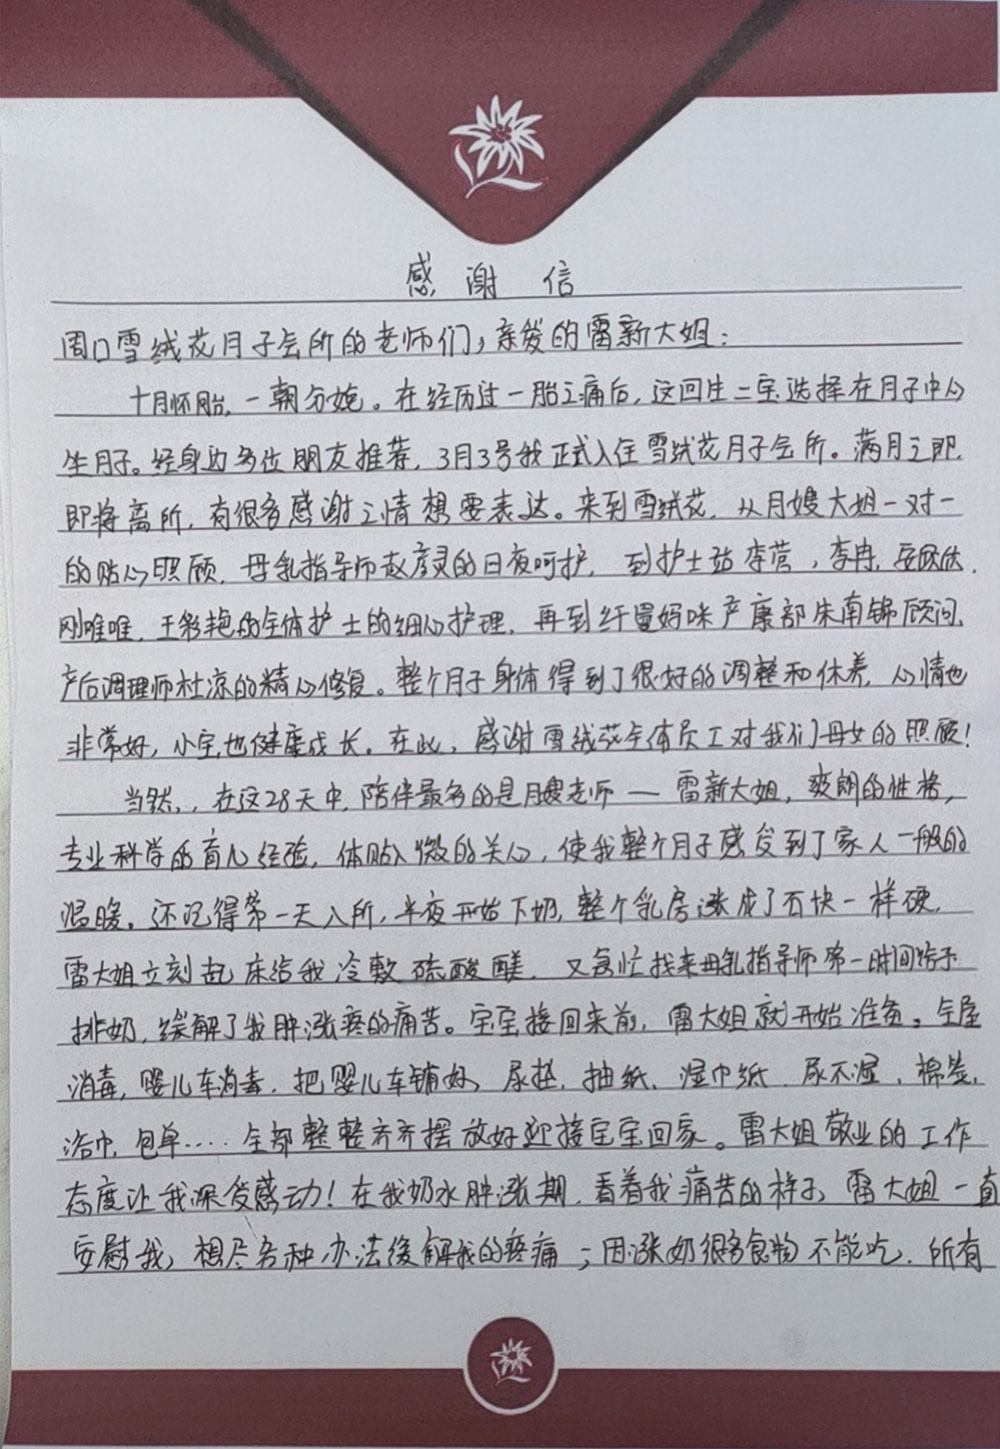 感谢信
周口雪绒花月子会所的老师们，亲爱的雷新大姐：
十月怀胎，一朝分娩。在经历过一胎之痛后，这回生二宝选择在月子中心
坐月子。经身边多位朋友推荐，3月3号我正式入住雪绒花月子会所。满月之即，
即将离所，有很多感谢之情想要表达。来到雪绒花，从月嫂大姐一对一
的贴心照顾，母乳指导师赵彦灵的日夜呵护，到护士站李营，李冉，安欣依，
刚唯唯，王彩艳的全体护士的细心护理，再到纤曼妈咪产康部朱南锦顾问，
产后调理师杜凉的精心修复。整个月子身体得到了很好的调整和休养，心情也
非常好，小宝也健康成长。在此，感谢雪绒花全体员工对我们母女的照顾！
当然，，在这28天中，陪伴最多的是月嫂老师—雷新大姐，爽朗的性格，
专业科学的育儿经验，体贴入微的关心，使我整个月子感受到了家人一般的
温暖。还记得第一天入所，半夜开始下奶，整个乳房涨成了石快一样硬，
雷大姐立刻起床给我冷敷硫酸醚，又急忙找来母乳指导师第一时间给予
排奶，缓解了我肿涨疼的痛苦。宝宝接回来前，雷大姐就开始准备。全屋
消毒，婴儿车消毒，把婴儿车铺好，尿垫，抽纸、湿巾纸、尿不湿、棉签，
浴巾，包单……全部整整齐齐摆放好迎接宝宝回家。雷大姐敬业的工作
态度让我深受感动！在我奶水肿涨期，看着我痛苦的样子，雷大姐一直
安慰我，想尽各种办法缓解我的疼痛；因涨奶很多食物不能吃，所有